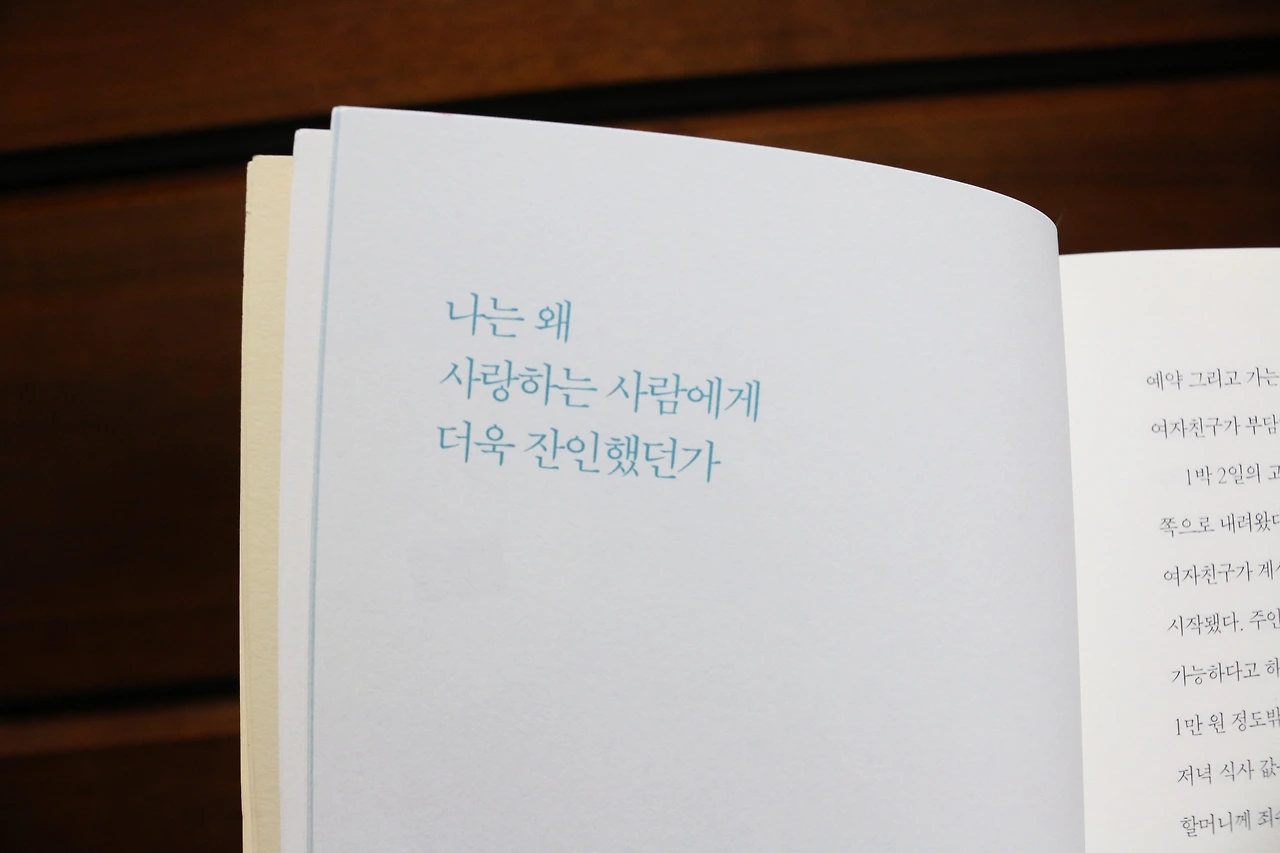 나는 왜
사랑하는 사람에게
더욱 잔인했던가
예약 그리고 가는
여자친구가 부담
1박 2일의
쪽으로 내려왔다
여자친구가
시작됐다. 주인
가능하다고
1만 원 정도밖
저녁 식사 값
할머니께